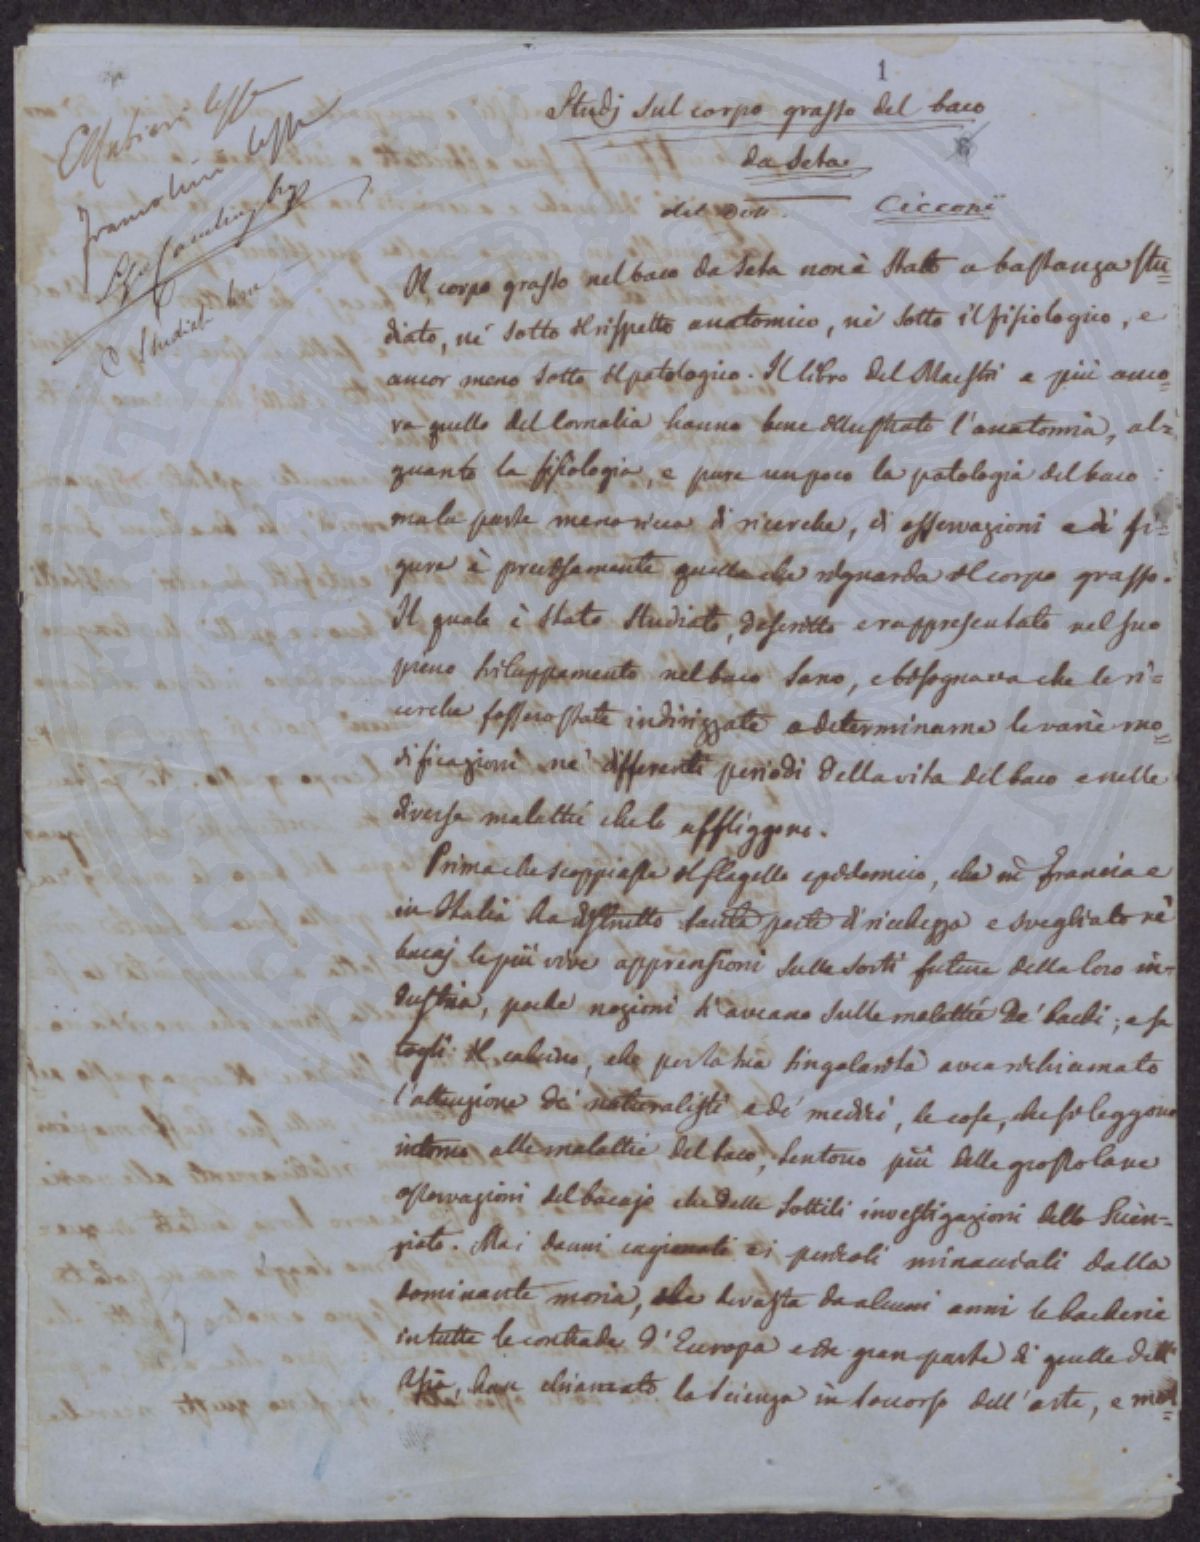 1
Studj sul corpo grasso del baco
da Seta
del Dott. Cicconi
Il corpo grasso nel baco da Seta non è stato a bastanza stu=
diato, nè sotto il rispetto anatomico, nè sotto il fisiologico, e
ancor meno sotto il patologico. Il libro del Maestri e più anco=
ra quello del Cornalia hanno bene illustrato l'anatomia, al=
quanto la fisiologia, e pure un poco la patologia del baco:
ma la parte meno ricca di ricerche, di osservazioni e di fi=
gure è precisamente quella che riguarda il corpo grasso.
Il quale è stato studiato, descritto e rappresentato nel suo
pieno sviluppamento nel baco sano, e bisognava che le ri=
cerche fossero state indirizzate a determinarne le varie mo=
dificazioni ne' differenti periodi della vita del baco e nelle
diverse malattie che lo affliggono.
Prima che scoppiasse il flagello epidemico, che in Francia e
in Italia ha distrutto tanta parte di ricchezza e svegliato ne'
bacaj le più vive apprensioni sulle sorti future della loro in=
dustria, poche nozioni s'aveano sulle malattie de' bachi; e se
togli il calcino, che per la sua singolarità avea richiamato
l'attenzione de' naturalisti e de' medici, le cose, che si leggono
intorno alle malattie del baco, sentono più delle grossolane
osservazioni del bacajo che delle sottili investigazioni dello Scien=
ziato. Ma i danni cagionati e i pericoli minacciati dalla
dominante moria, che devasta da alcuni anni le bacherie
in tutte le contrade d'Europa e in gran parte di quelle dell'
Asia, han chiamato la scienza in soccorso dell'arte, e mol=